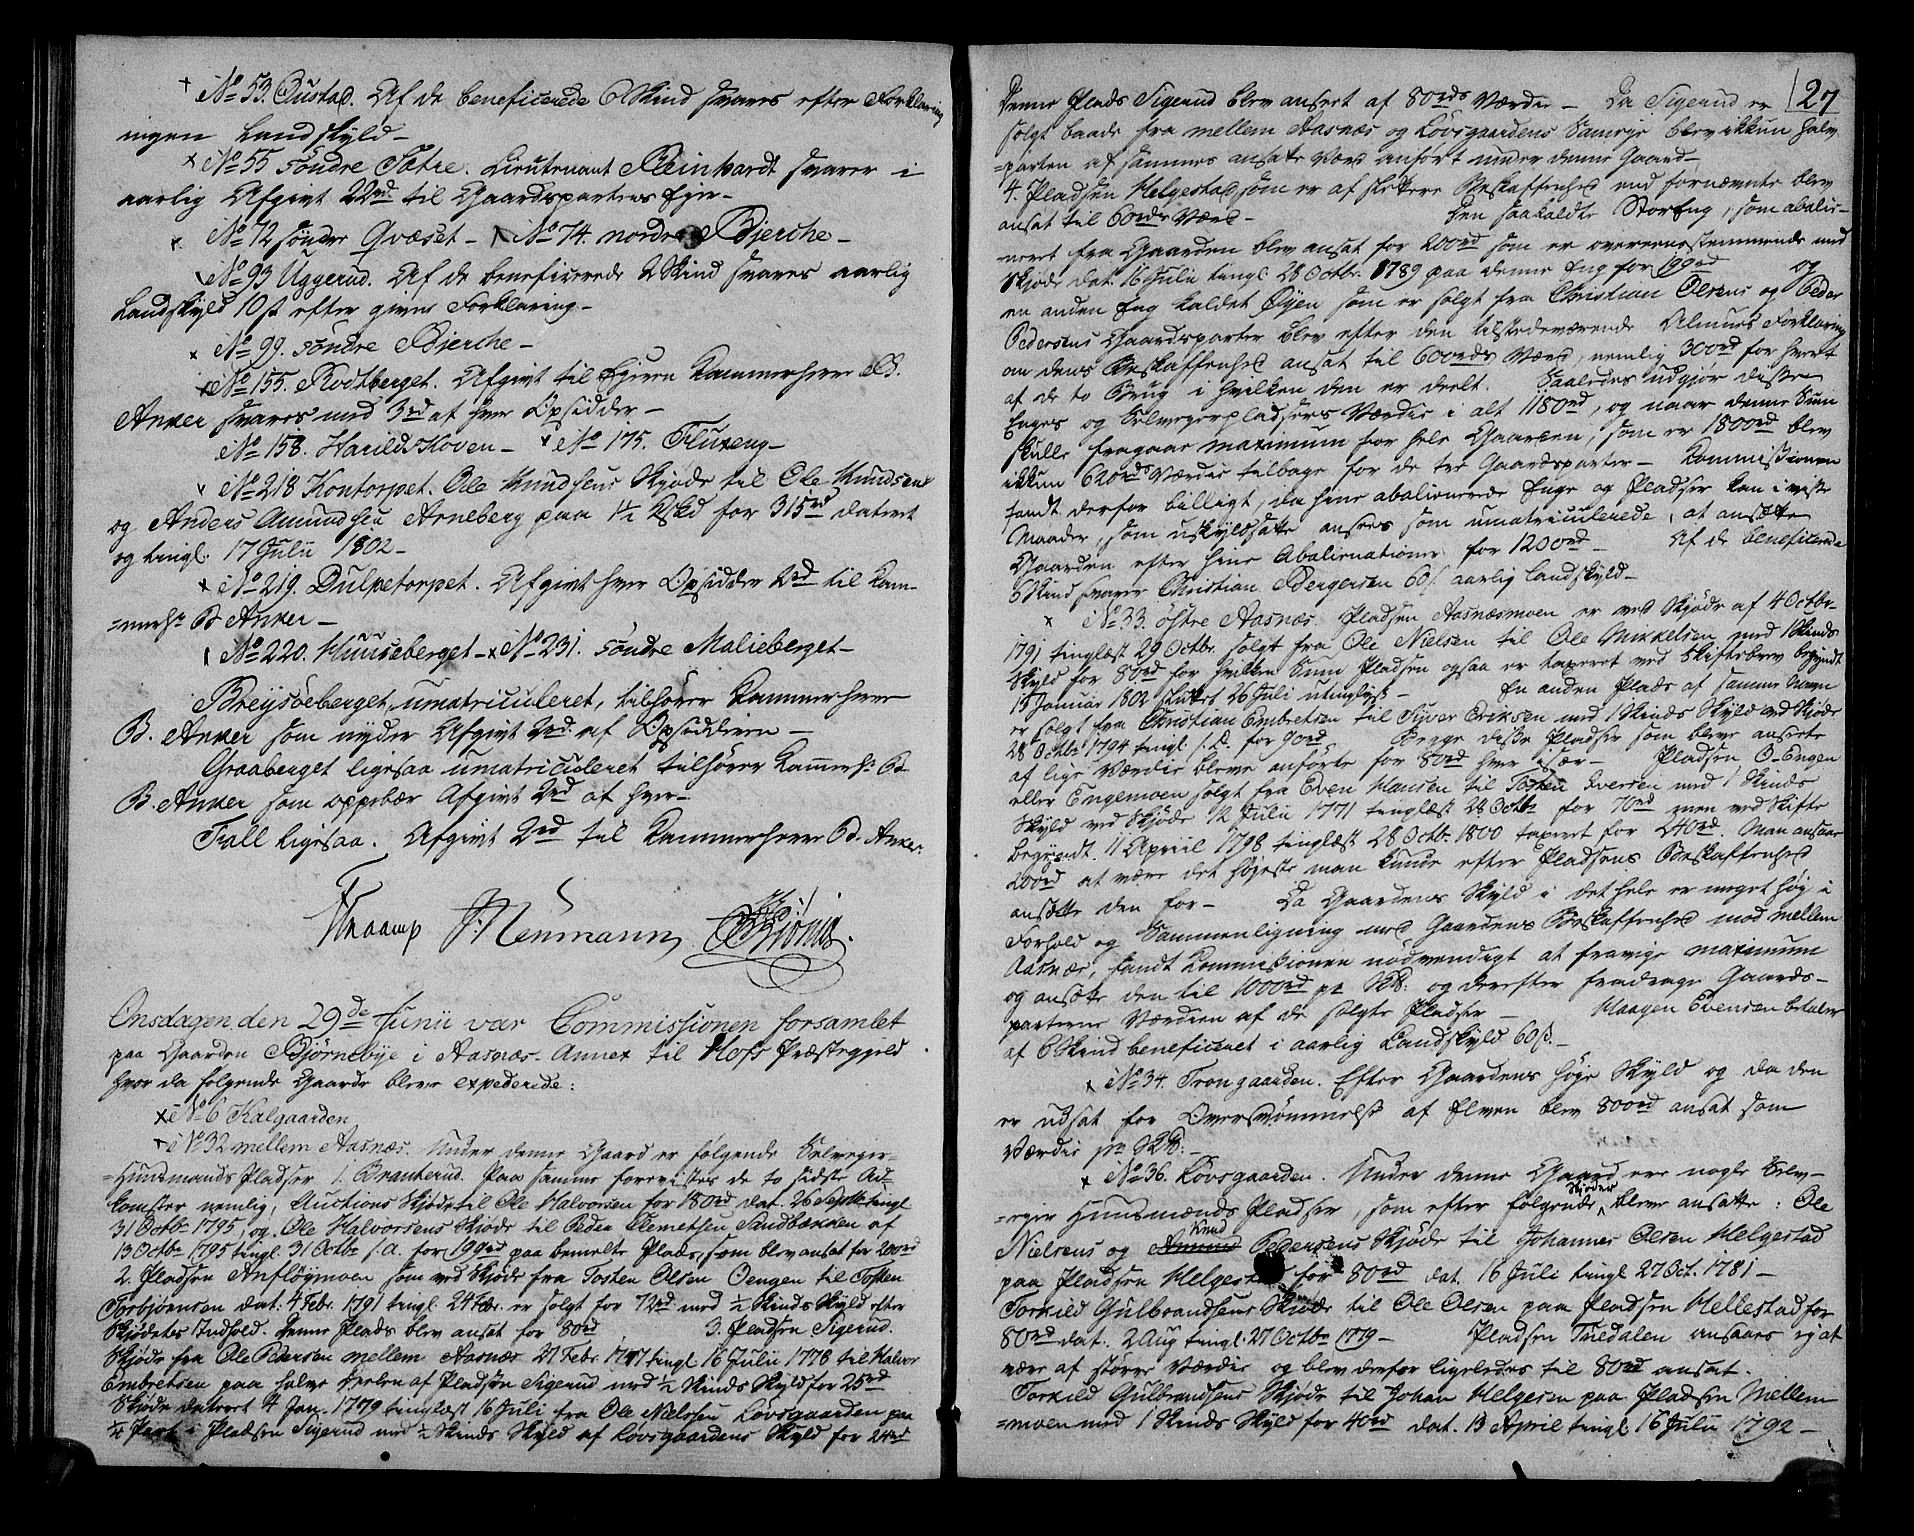 No 53. Gustad. Af de beneficerede 6 Skind svares efter Forklaring
ingen Landskyld –
No 55 søndre Sætre. Lieutenant Reinhardt svarer i
aarlig Afgivt 22rd til Gaardspartens Ejer –
No 72 søndre Qvæset – No 74. nordre Bjerche –
No 93 Uggerud. Af de beneficerede 2 Skind svares aarlig
Landskyld 10 ß efter given Forklaring –
No 99. søndre Bjerche –
No 155. Rodtberget. Afgivt til Ejeren Kammerherre B.
Anker svares med 3rd af hver Opsidder –
No 158. Harildskoven – No 175. Fluxeng –
No 218 Kontorpet. Ole Knudsens Skjøde til Ole Knudsen
og Anders Amundsen Arneberg paa 1½ Skd for 315rd datert
og tingl. 17 Julii 1802 –
No 219. Dulpetorpet. Afgivt hver Opsidder 2rd til Kam-
=merhr B Anker –
No 220. Huuseberget – No 231. søndre Malieberget –
Breysøeberget, umatriculeret, tilhører Kammerherre
B. Anker som nyder Afgivt 2rd af Opsidderen –
Graaberget ligesaa umatriculeret tilhører Kammerhr
B. Anker som oppebær Afgivt 2rd af hver –
Fall ligesaa. Afgivt 2rd til Kammerherre B. Anker.
Knaamp Neumann
Onsdagen den 29de Junii var Commissionen forsamlet
paa Gaarden Bjørnebye i Aasnæs-Annex til Hofs Præstegjeld
hvor da følgende Gaarde bleve expederede:
No 6 Kalgaarden
No 32 mellem Aasnæs. Under denne Gaard er følgende Selveyer-
=Huusmands Pladser 1. Brankerud. Paa samme forevistes de to sidste Ad-
komster nemlig, Auctions Skjøde til Ole Halvorsen for 180rd dat. 26 Septbr tingl
31 Octbr 1795, og Ole Halvorsens Skjøde til Peder Clemetsen Sandbækken af
13 Octbr 1795 tingl. 31 Octbr s. a. for 199rd paa bemelte Plads, som blev ansat for 200rd
2. Pladsen Anfløymoen som ved Skjøde fra Tosten Olsen Oengen til Tosten
Torbjørnsen dat. 4 Febr. 1791 tingl. 24 Febr. er solgt for 72rd med ½ Skinds Skyld efter
Skjødets Indhold. Denne Plads blev ansat for 80rd 3. Pladsen Sigerud.
Skjøde fra Ole Pedersen mellem Aasnæs 21 Febr. 1777 tingl 16 Julii 1778 til Halvor
Embretsen paa halve Deelen af Pladsen Sigerud med ½ Skinds Skyld for 25rd
Skjøde datert 4 Jan. 1779 tinglæst 16 Juli fra Ole Nielsen Løvsgaarden paa
¼ Part i Pladsen Sigerud med ½ Skinds Skyld af Løvsgaardens Skyld for 24rd
27
Denne Plads Sigerud blev ansert af 80rds Værdie – Da Sigerud er
solgt baade fra mellem Aasnæs og Løvsgaardens Sameye blev ikkun halv
=parten af sammes ansatte Værd anført under denne Gaard –
4. Pladsen Helgestad som er af slettere Beskaffenhed end fornævnte blev
ansat til 60rds Værd – Den saakaldte StorEng, som abalie-
neert fra Gaarden blev ansat for 200rd som er overeensstemmende med
Skjøde dat. 16 Julii tingl. 28 Octbr. 1789 paa denne Eng for 199rd og
en anden Eng kaldet Øyen som er solgt fra Christian Olsens og Peder
Pedersens Gaardsparter blev efter den tilstedeværende Almues Forklaring
om dens Beskaffenhed ansat til 600rds Værd, nemlig 300rd for hvert
af de to Brug i hvilken den er deelt. Saaledes udgjør disse
Enges og Selveyerpladsers Værdie i alt 1180rd, og naar denne Sum
skulle fragaae maximum for hele Gaarden, som er 1800rd blev
ikkun 620rds Værdie tilbage for de tre Gaardsparter – Kommissionen
fandt derfor billigt, da hine abalienerede Enge og Pladser kan i visse
Maader, som uskyldsatte ansees som umatriculerede, at ansætte
Gaarden efter hine Abalienationer for 1200rd – Af de beneficerede
6 Skind svarer Christian Bergersen 60 ß aarlig Landskyld –
No 33. østre Aasnæs. Pladsen Aasnæsmoen er ved Skjøde af 4 Octbr
1791 tinglæst 29 Octbr. solgt fra Ole Nielsen til Ole Mikkelsen med 1 Skinds
Skyld for 80rd for hvilken Sum Pladsen ogsaa er taxeret ved Skiftebrev begyndt
15 Januar 1802 sluttet 26 Juli utinglyst – En anden Plads af samme Navn
er solgt fra Christian Embretsen til Syver Eriksen med 1 Skinds Skyld ved Skjøde
28 Octbr 1794 tingl. s. D. for 90rd. Begge disse Pladser som bleve ansete
af lige Værdie bleve anførte for 80rd hver især – Pladsen O-Engen
eller Engemoen solgt fra Even Hansen til Tosten Iversen med 1 Skinds
Skyld ved Skjøde 12 Julii 1771 tinglæst 28 Octbr for 70rd men ved Skifte
begyndt 11 April 1798 tinglæst 28 Octbr. 1800 taxeret for 240rd. Man ansaae
200rd at være det høyeste man kunde efter Pladsens Beskaffenhed
ansætte den for – Da Gaardens Skyld i det hele er meget høy i
Forhold og Sammenligning med Gaardens Beskaffenhed mod mellem
Aasnæs, fandt Kommissionen nødvendigt at fravige maximum
og ansætte den til 1000rd pr Skd. og derefter fradrage Gaards-
parterne Værdien af de solgte Pladser – Haagen Evensen betaler
af 6 Skind beneficeret i aarlig Landskyld 60 ß. –
No 34. Trongaarden. Efter Gaardens høye Skyld og da den
er udsat for Oversvømmelse af Elven blev 800rd ansat som
Værdie pr Skd. –
No 36. Løvsgaarden. Under denne Gaard ere nogle Selv-
=eyer Huusmænds Pladser, som efter følgende Skjøder bleve ansatte: Ole
Nielsens og Amund Knud Pedersens Skjøde til Johannes Olsen Helgestad
paa Pladsen Helgestad for 80rd dat. 16 Juli tingl 27 Oct. 1781 –
Torkild Gulbrandsens Skjøde til Ole Olsen paa Pladsen Hellestad for
80rd dat. 2 Aug tingl. 27 Octbr 1779 – Pladsen Tuedalen ansaaes ey at
være af større Værdie og blev derfor ligeledes til 80rd ansat.
Torkild Gulbrandsens Skjøde til Johan Helgesen paa Pladsen Mellem-
=moen med 1 Skinds Skyld for 40rd dat. 13 April tingl 16 Julii 1792 –